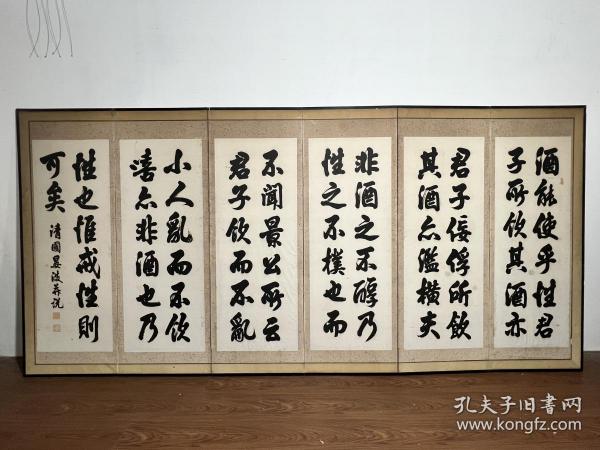 酒能使乎性君
子所饮其酒亦
君子佞俘所飲
其酒亦濫橫夫
非酒之不醇乃
性之不樸也而
不闻景公所云
君子饮而不亂
小人亂而不饮
嘻亦非酒也乃
性也惟戒性則
可矣
清國
孔夫子旧書网
www.kongfz.com